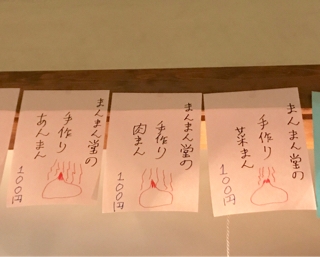 まんまん堂の
手作り
あんまん
100円
まんまん堂の
手作り
肉まん
100円
まんまん堂の
手作り
菜まん
100円